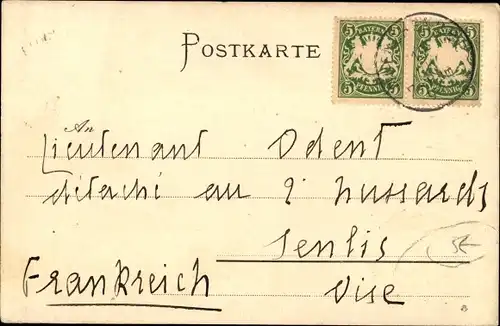 POSTKARTE
BAYERN BAYERN
5 5 5 5
PFENNIG PFENNIG
An
Lieutenant Odent
détaché au 2e hussards
Senlis
Frankreich Oise
5E